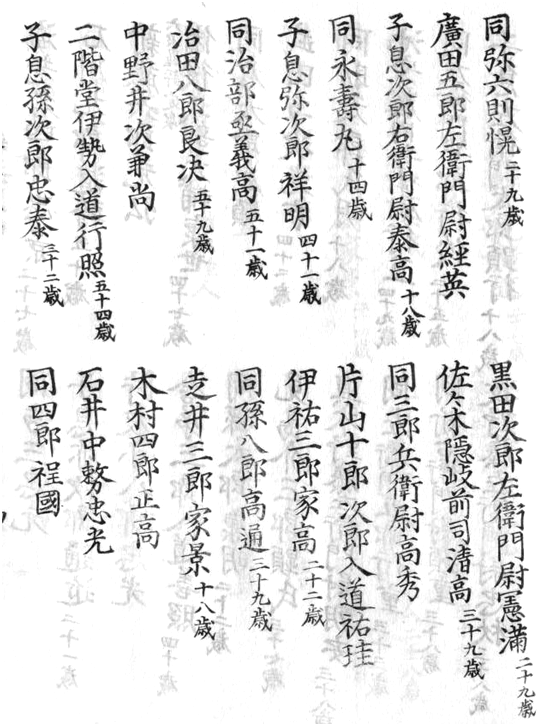 同弥六則愰 二十九歳
廣田五郎左衛門尉經英
子息次郎右衛門尉泰高 十八歳
同永壽丸 十四歳
子息弥次郎祥明 四十一歳
同治部丞義高 五十一歳
冶田八郎良决 五十九歳
中野井次郎尚
二階堂伊勢入道行照 五十四歳
子息孫次郎忠泰 三十二歳
黒田次郎左衛門尉憲満 二十九歳
佐々木隠岐前司清高 三十九歳
同三郎兵衛尉高秀
片山十郎次郎入道祐珪
伊祐三郎家高 二十二歳
同孫八郎高通 三十九歳
井三郎家景 十八歳
木村四郎正高
石井中務忠光
同四郎裎國